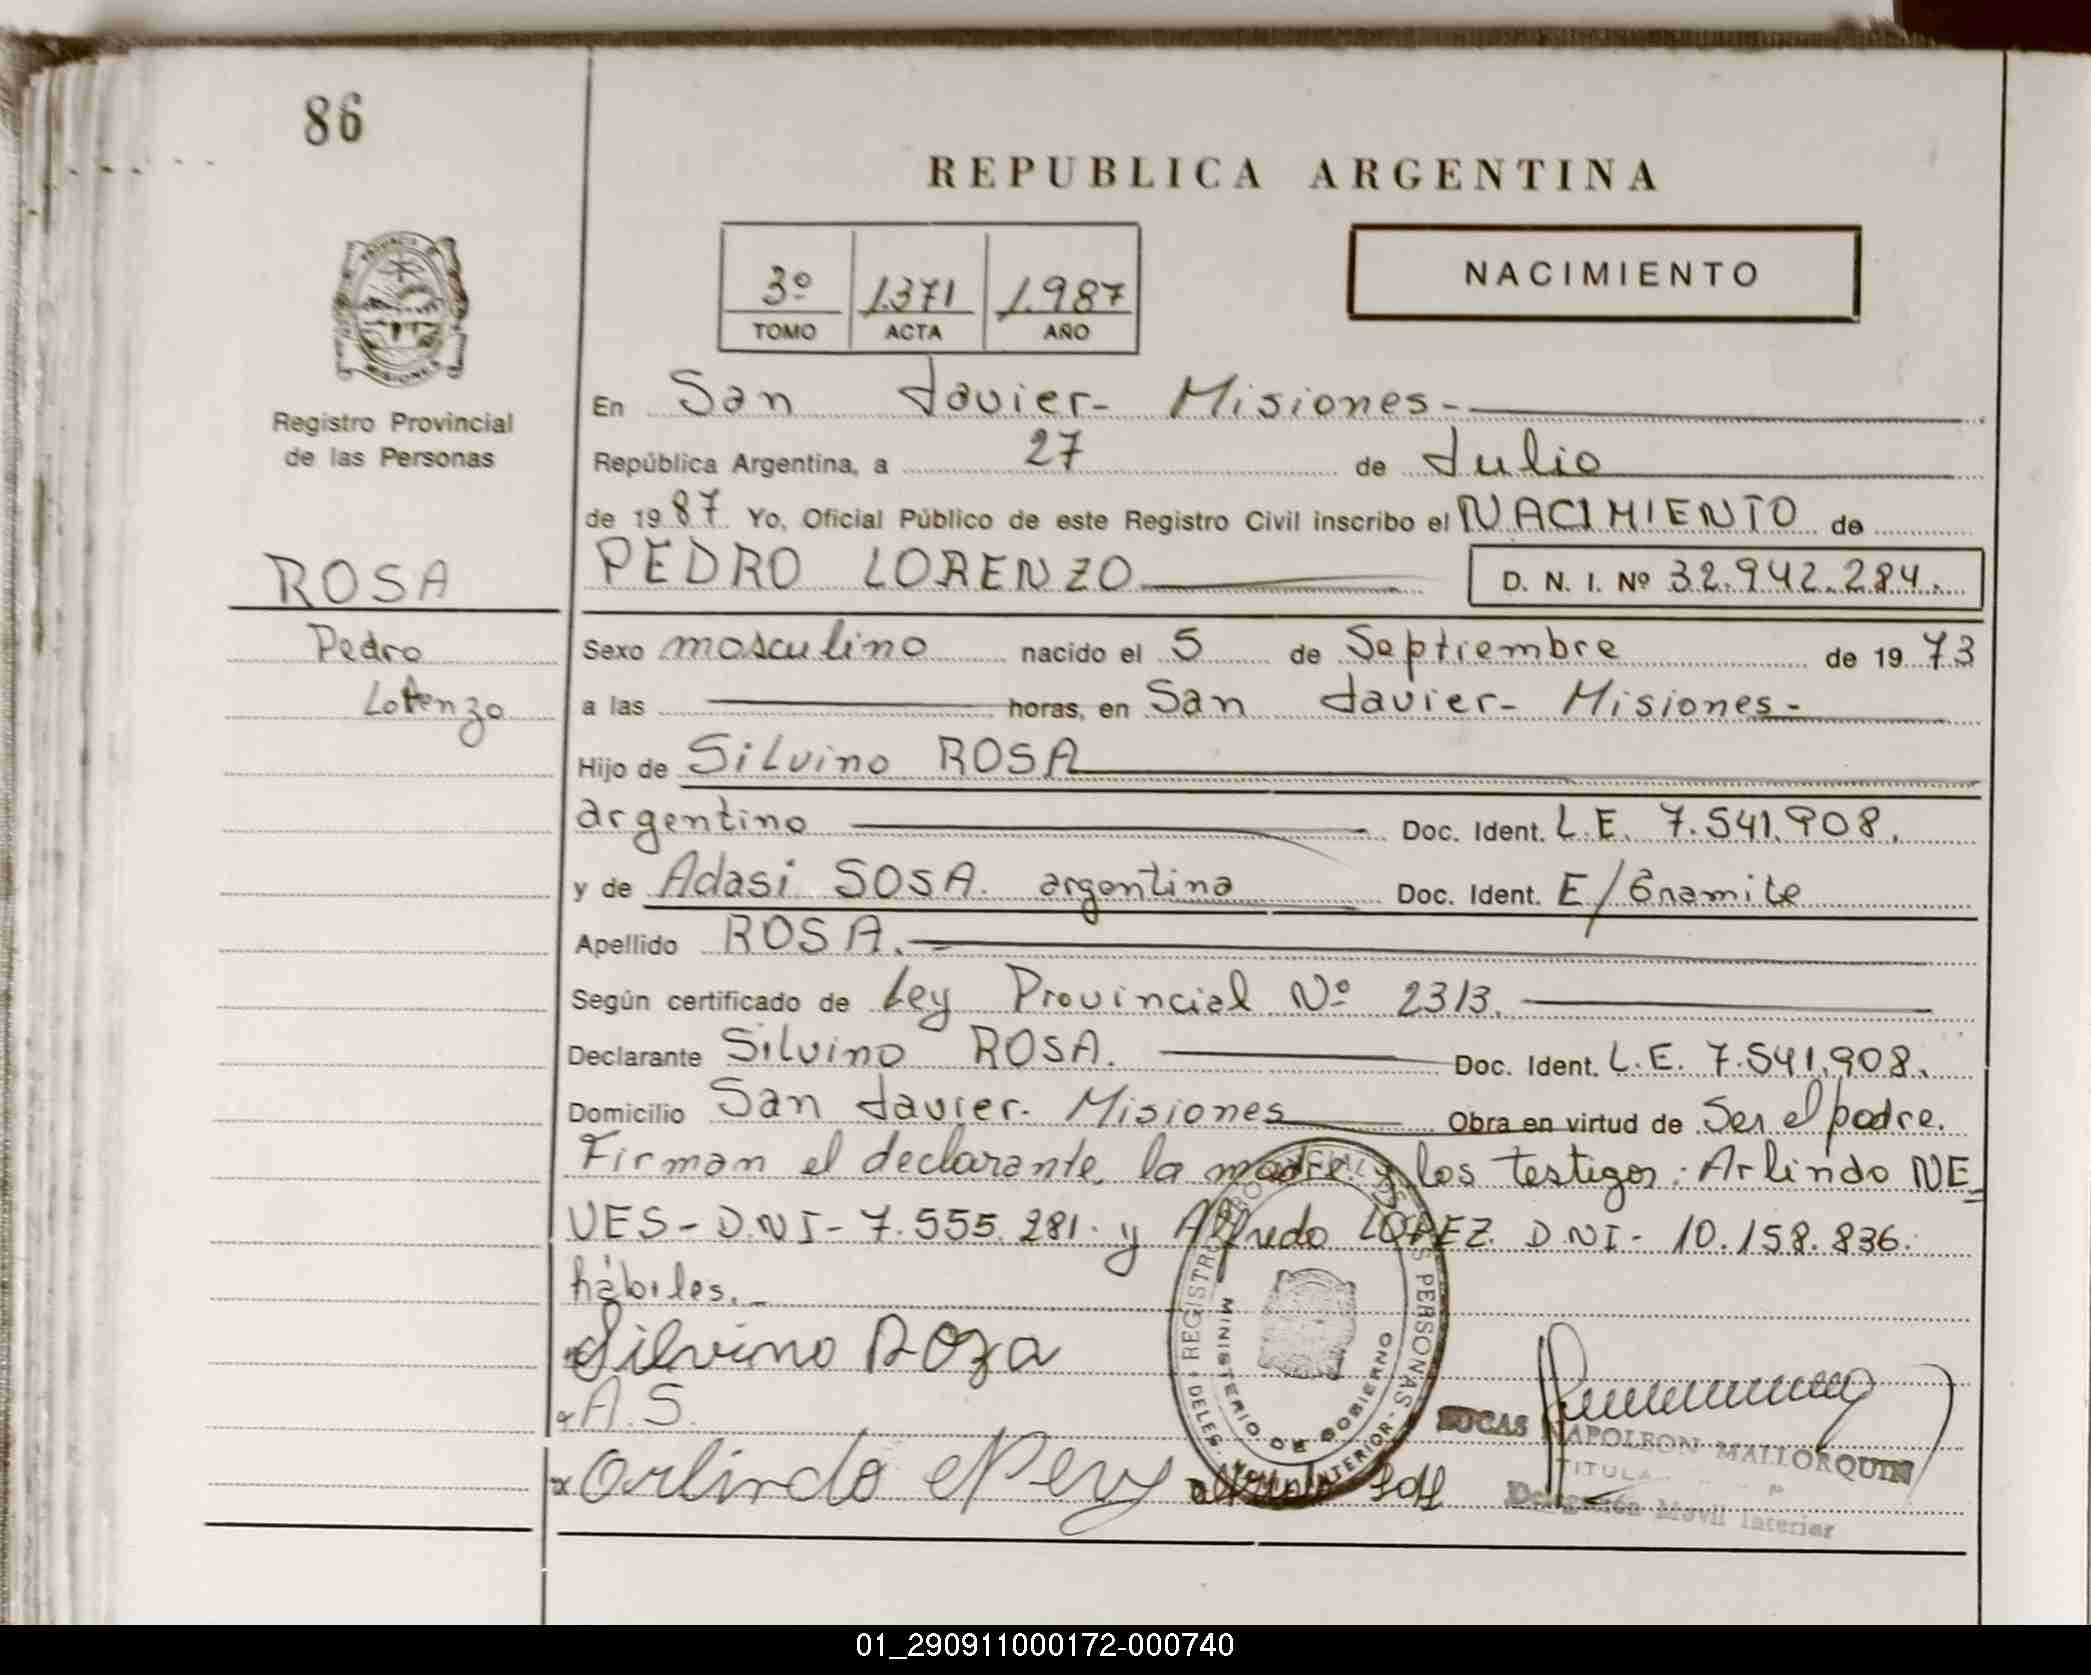 86
REPUBLICA ARGENTINA
3º 1371 1.987
TOMO ACTA AÑO
NACIMIENTO
Registro Provincial
de las Personas
En San Javier- Misiones-
República Argentina, a 27 de Julio
de 1987 Yo, Oficial Público de este Registro Civil inscribo el NACIMIENTO de
ROSA
PEDRO LORENZO D. N. I. Nº 32.942.284.
Pedro
Lorenzo
Sexo masculino nacido el 5 de Septiembre de 1973
a las horas, en San Javier- Misiones-
Hijo de Silvino ROSA
argentino Doc. Ident. L.E. 7.541.908.
y de Adasi SOSA. argentina Doc. Ident. E/tramite
Apellido ROSA.
Según certificado de Ley Provincial Nº 2313.
Declarante Silvino ROSA. Doc. Ident. L.E. 7.541.908.
Domicilio San Javier. Misiones Obra en virtud de Ser el padre.
Firman el declarante, la madre y los testigos: Arlindo NE_
VES- D.N.I- 7.555.281. y Alfredo LOPEZ. D.N.I- 10.158.836.
hábiles.
Silvino Roza
A.S.
Orlindo
REGISTRO PROVINCIAL DE LAS PERSONAS - DELEG. MOVIL INTERIOR -
MINISTERIO DE GOBIERNO
LUCAS NAPOLEON MALLORQUIN
TITULAR
Delegación Movil Interior
01_290911000172-000740